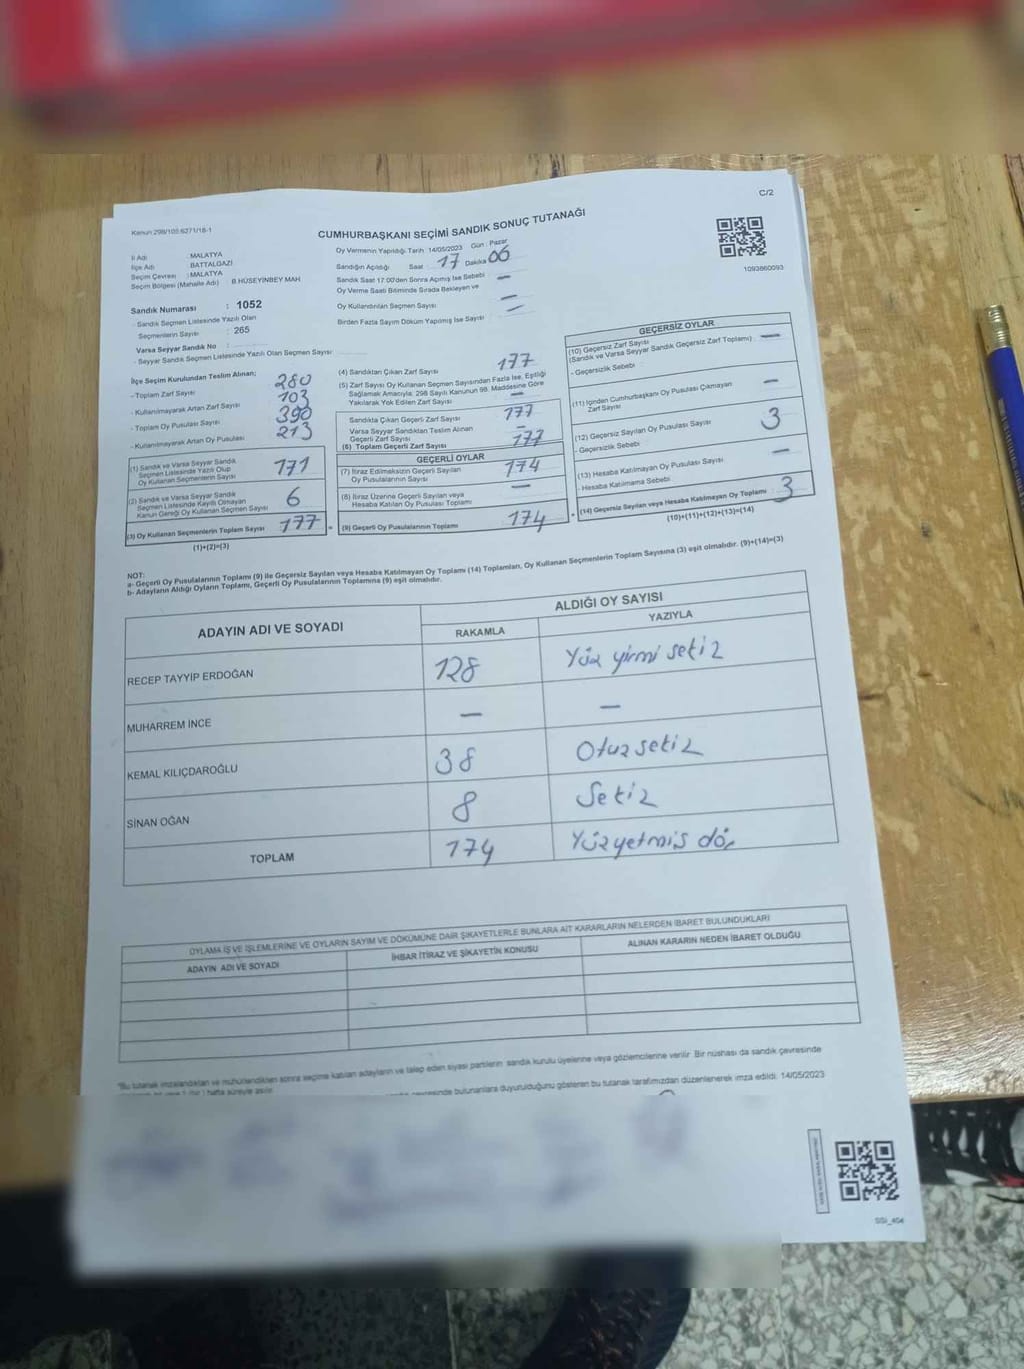 C/2
Kanun 298/105.6271/18-1
CUMHURBAŞKANI SEÇİMİ SANDIK SONUÇ TUTANAĞI
1093860093
İl Adı : MALATYA
İlçe Adı : BATTALGAZİ
Seçim Çevresi : MALATYA
Seçim Bölgesi (Mahalle Adı) : B.HÜSEYİNBEY MAH
Sandık Numarası : 1052
- Sandık Seçmen Listesinde Yazılı Olan
Seçmenlerin Sayısı : 265
Varsa Seyyar Sandık No :
- Seyyar Sandık Seçmen Listesinde Yazılı Olan Seçmen Sayısı :
Oy Vermenin Yapıldığı Tarih : 14/05/2023 Gün : Pazar
Sandığın Açıldığı Saat 17 Dakika 06
Sandık Saat 17:00'den Sonra Açılmış İse Sebebi —
Oy Verme Saati Bitiminde Sırada Bekleyen ve
Oy Kullandırılan Seçmen Sayısı —
Birden Fazla Sayım Döküm Yapılmış İse Sayısı —
İlçe Seçim Kurulundan Teslim Alınan;
- Toplam Zarf Sayısı 280
- Kullanılmayarak Artan Zarf Sayısı 103
- Toplam Oy Pusulası Sayısı 390
- Kullanılmayarak Artan Oy Pusulası 213
(1) Sandık ve Varsa Seyyar Sandık
Seçmen Listesinde Yazılı Olup
Oy Kullanan Seçmenlerin Sayısı 171
(2) Sandık ve Varsa Seyyar Sandık
Seçmen Listesinde Kayıtlı Olmayan
Kanun Gereği Oy Kullanan Seçmen Sayısı 6
(3) Oy Kullanan Seçmenlerin Toplam Sayısı 177 =
(1)+(2)=(3)
(4) Sandıktan Çıkan Zarf Sayısı 177
(5) Zarf Sayısı Oy Kullanan Seçmen Sayısından Fazla İse, Eşitliği
Sağlamak Amacıyla; 298 Sayılı Kanunun 98. Maddesine Göre
Yakılarak Yok Edilen Zarf Sayısı —
Sandıkta Çıkan Geçerli Zarf Sayısı 177
Varsa Seyyar Sandıktan Teslim Alınan
Geçerli Zarf Sayısı —
(6) Toplam Geçerli Zarf Sayısı 177
GEÇERLİ OYLAR
(7) İtiraz Edilmeksizin Geçerli Sayılan
Oy Pusulasının Sayısı 174
(8) İtiraz Üzerine Geçerli Sayılan veya
Hesaba Katılan Oy Pusulası Toplamı —
(9) Geçerli Oy Pusulalarının Toplamı 174 +
GEÇERSİZ OYLAR
(10) Geçersiz Zarf Sayısı
(Sandık ve Varsa Seyyar Sandık Geçersiz Zarf Toplamı) —
- Geçersizlik Sebebi :
(11) İçinden Cumhurbaşkanı Oy Pusulası Çıkmayan
Zarf Sayısı —
(12) Geçersiz Sayılan Oy Pusulası Sayısı 3
- Geçersizlik Sebebi :
(13) Hesaba Katılmayan Oy Pusulası Sayısı —
- Hesaba Katılmama Sebebi :
(14) Geçersiz Sayılan veya Hesaba Katılmayan Oy Toplamı 3
(10)+(11)+(12)+(13)=(14)
NOT:
a- Geçerli Oy Pusulalarının Toplamı (9) ile Geçersiz Sayılan veya Hesaba Katılmayan Oy Toplamı (14) Toplamları, Oy Kullanan Seçmenlerin Toplam Sayısına (3) eşit olmalıdır. (9)+(14)=(3)
b- Adayların Aldığı Oyların Toplamı, Geçerli Oy Pusulalarının Toplamına (9) eşit olmalıdır.
ADAYIN ADI VE SOYADI
ALDIĞI OY SAYISI
RAKAMLA YAZIYLA
RECEP TAYYİP ERDOĞAN 128 Yüz yirmi sekiz
MUHARREM İNCE — —
KEMAL KILIÇDAROĞLU 38 Otuz sekiz
SİNAN OĞAN 8 Sekiz
TOPLAM 174 Yüzyetmiş dör
OYLAMA İŞ VE İŞLEMLERİNE VE OYLARIN SAYIM VE DÖKÜMÜNE DAİR ŞİKAYETLERLE BUNLARA AİT KARARLARIN NELERDEN İBARET BULUNDUKLARI
ADAYIN ADI VE SOYADI İHBAR İTİRAZ VE ŞİKAYETİN KONUSU ALINAN KARARIN NEDEN İBARET OLDUĞU
*Bu tutanak imzalandıktan ve mühürlendikten sonra seçime katılan adayların ve talep eden siyasi partilerin sandık kurulu üyelerine veya gözlemcilerine verilir. Bir nüshası da sandık çevresinde
hafta süreyle asılır.
çevresinde bulunanlara duyurulduğunu gösteren bu tutanak tarafımızdan düzenlenerek imza edildi. 14/05/2023
SSI_404